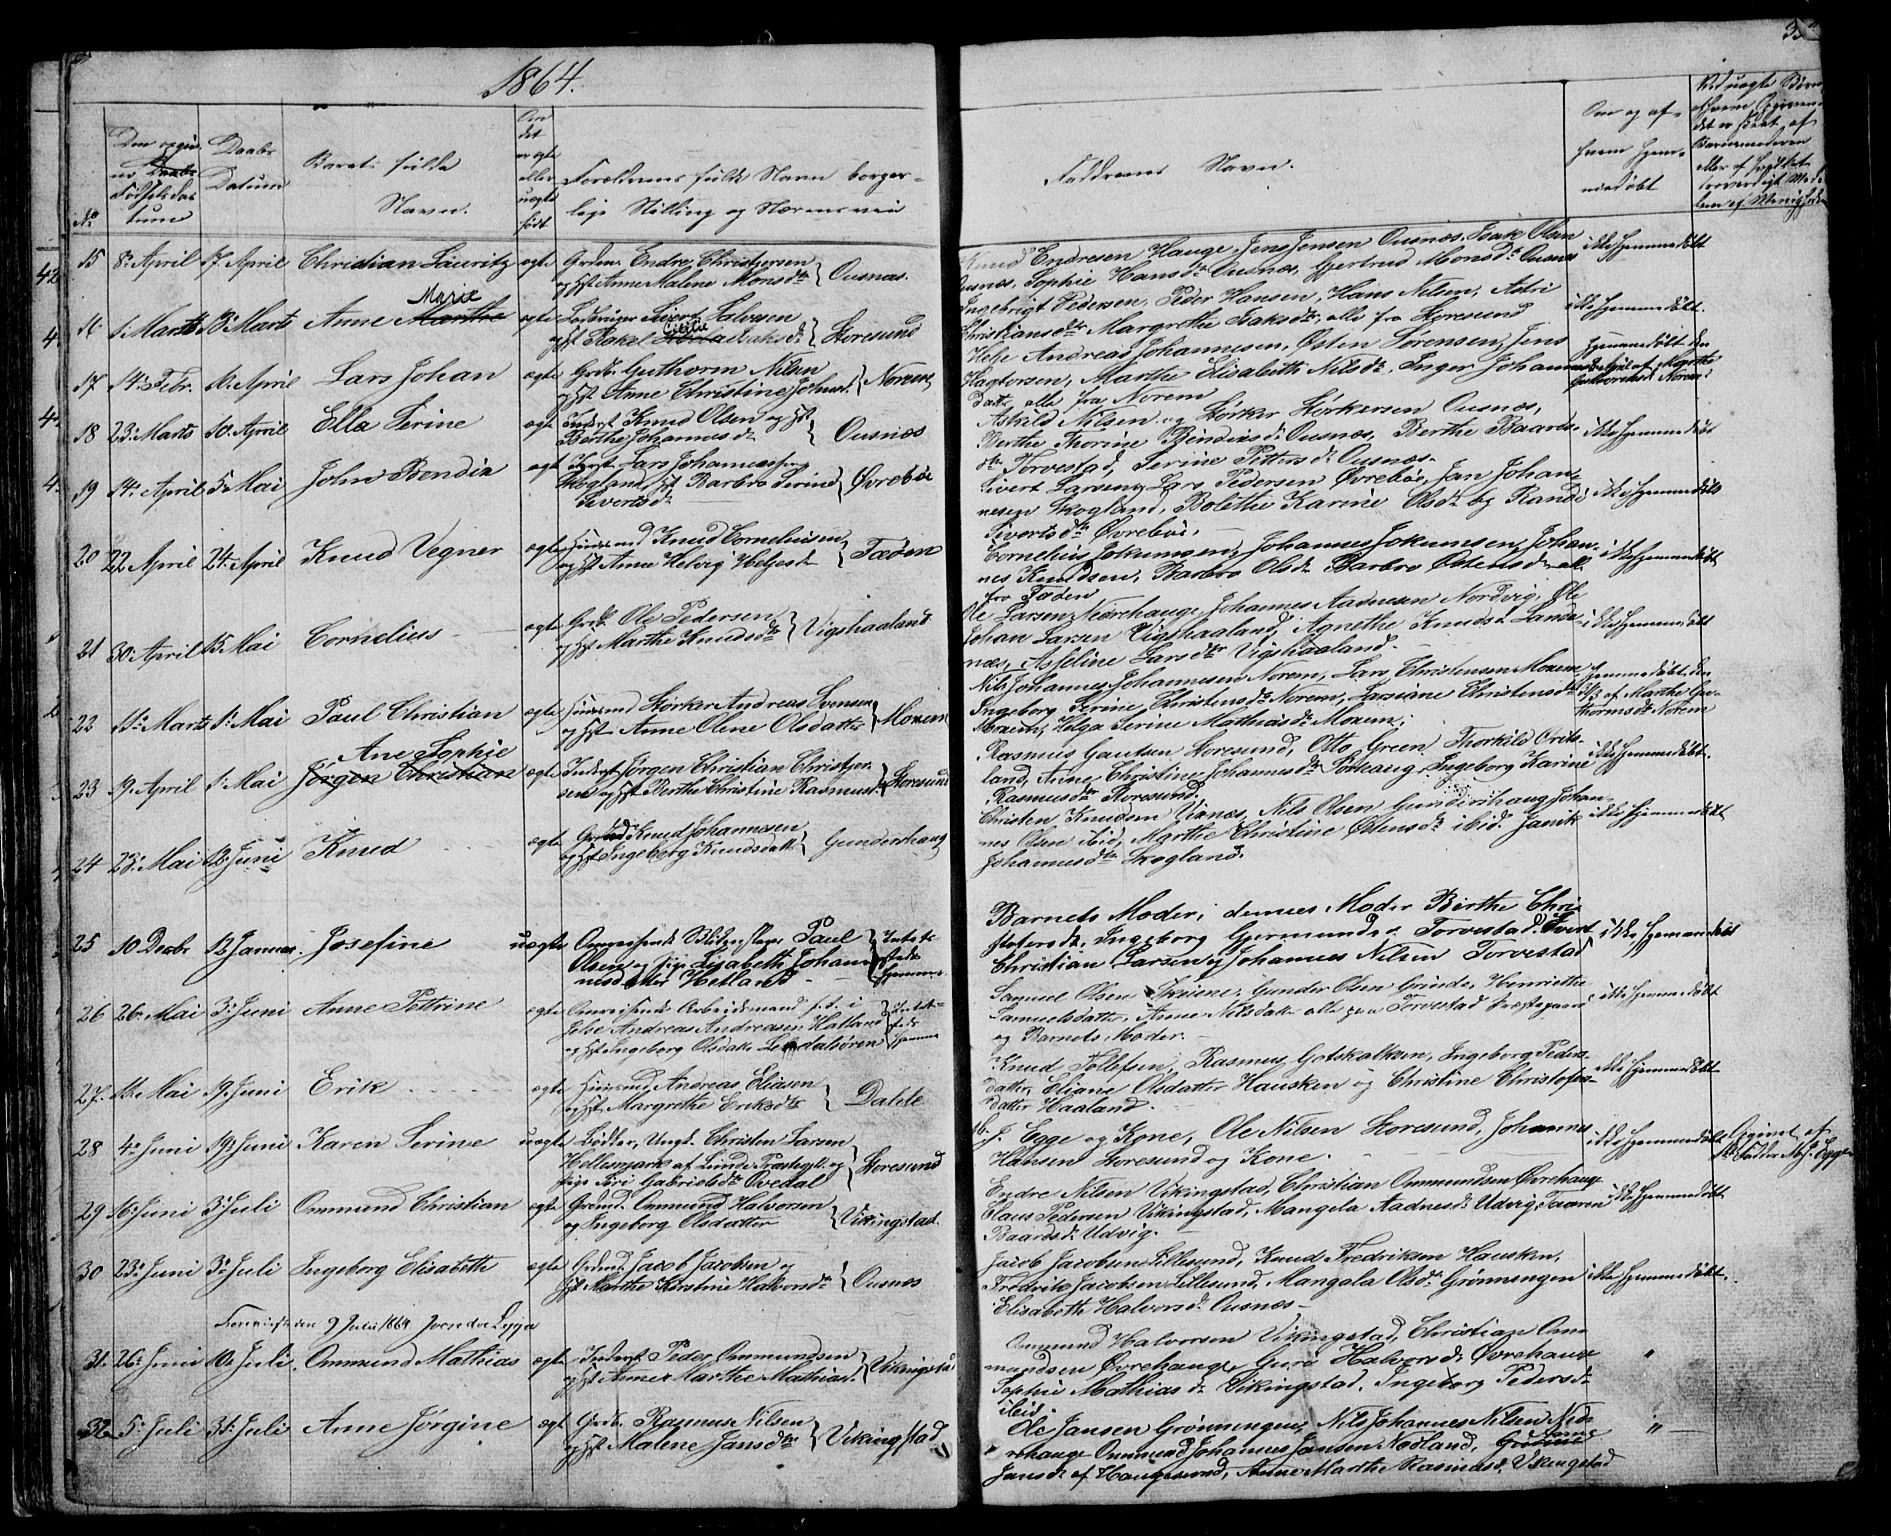 1864.
No
Daabs
Datum
Barnets fulde
Navn.
Forældrenes fulde Navn borger-
lige Stilling og
Faddrenes Navn.
Om og af
hvem hjem-
medøbt
15 8de April 17 April Christian Lauritz ægte Grdm. Endre Christensen
og Hst Anne Malene Monsdtr } Ousnæs.
Knud Endresen Hauge, Jens Jensen Ousnæs, Isak Olsen
Ousnæs, Sophie Hansdtr Ousnæs, Gjertrud Monsdtr Ousnæs
ikke hjemmedøbt
Marie
16 1 Marts 13 Marts Anne Marthe ægte Sivert Salvesen
og Hst Rakel Isaksdtr } Storesund
Ingebrigt Pedersen, Peder Hansen, Hans Nilsen, Astri
Christiansdtr Margrethe Isaksdtr, alle fra Storesund
ikke hjemmedøbt.
17 14 Febr. 10 April Lars Johan ægte Grdb. Guthorm Nilsen
og Hst Anne Christine Johansd. } Norem
Helje Andreas Johannesen, Østen Sørensen, Jens
Hagtorsen, Marthe Elisabeth Nilsdtr, Inger Johannes
Datter alle fra Norem
hjemmedøbt den
18 23 Marts 10 April Ella Serine ægte Inderst Knud Olsen og Hst
Berthe Johannesdtr } Ousnæs
Askild Nilsen og Størker Størkersen Ousnæs,
Berthe Thorine Ousnæs, Berthe Baards-
dtr Torvestad, Serine Pettersdtr Ousnæs.
ikke hjemmedøbt
19 14 April 5 Mai John Bendix ægte Lars Johannessen
Skogland, Hst Barbro Serine
Sivertsdtr } Øvrebøe
Sivert Larsen, Lars Pedersen Øvrebøe, Jan Johan-
nesen Skogland, Bolethe Karine Olsdtr og Randi
Sivertsdtr Øvrebøe.
ikke hjemmedøbt
20 22 April 24 April Knud Vegner ægte Huusmd Knud Corneliussen
og Hst Anne Helvig Helgesdtr } Fæøen
Cornelius Jokumsen, Johannes Jokumsen, Johan-
nes Knudsen, Barbro Olsdtr Barbro Østensdtr alle
fra Fæøen
ikke hjemmedøbt
21 30 April 15 Mai Cornelius ægte Grdb. Ole Pedersen
og Hst Marthe Knudsdtr } Vigshaaland
Ole Larsen Nedrehauge, Johannes Aadnesen Nordvig, Ole
Johan Larsen Vigshaaland, Agnethe Knudsdtr Lande-
næs, Asseline Larsdtr Vigshaaland.
ikke hjemmedøbt
22 11 Marts 1 Mai Paul Christian ægte Huusmd Størker Andreas Svensen
og Hst Anne Olene Olsdatter } Moxem
Nils Johannes Johannesen Norem, Lars Christensen Moxem,
Ingeborg Serine Christensdtr Norem, Larsiane Christensdtr
Moxem, Helga Serine Mathiasdtr Moxem.
hjemmedøbt den
21/3 af Marthe Gu-
thormsdtr Norem
Ane Sophie
23 9 April 1 Mai Jørgen Christian ægte Inderst Jørgen Christian Christen-
sen og Hst Berthe Christine Rasmusd. } Storesund
Rasmus Gautsen Storesund, Otto Green, Thorkild
land, Anne Christine Johannesdtr Sørhaug, Ingeborg Karine
Rasmusdtr Storesund.
ikke hjemmedøbt.
24 23 Mai 12 Juni Knud ægte Knud Johannesen
og Hst Ingeborg Knudsdatter } Gundershaug
Christen Knudsen Vianæs, Nils Olsen Gundershaug, Johan-
nes Olsen ibid, Marthe Christine Østensdtr ibid. Janik
Johannesdtr Skogland.
ikke hjemmedøbt
25 10 Decbr 12 Januar. Josefine uægte Omreisende Paul
Olsen og Pige Lisabeth Johan-
nesdatter Hetland } Intet
Sted
hjemme
Barnets Moder, dennes Moder Birthe Chri-
stofersdtr, Ingeborg Gjermundsdtr Torvestad, Evert
Christian Larsen og Johannes Nilsen Torvestad
ikke hjemmedøbt
26 26 Mai 3 Juni Anne Petrine ægte Omreisende Arbeidsmand p.t. i
Andreas Andreasen Hatland
og Hst Ingeborg Olsdatter } Intet
Sted
hjemme
Samuel Olsen Skeiene, Gunder Olsen Grinde, Henriette
Samuelsdatter, Anne Nilsdatter alle paa Torvestad Præstegaard
og Barnets Moder.
ikke hjemmedøbt
27 12 Mai 19 Juni Erik ægte Huusmd Andreas Eliasen
og Hst Margrethe Eriksdtr } Dahle
Knud Tollefsen, Rasmus Gotskalksen, Ingeborg Peders-
datter, Eliane Olsdatter Hausken og Christine Christofers-
datter Haaland.
ikke hjemmedøbt
28 4 Juni 19 Juni Karen Serine uægte Bødker, Ungk. Christen Larsen
Hellesmark af Lunde Præstegjld og
Pige Siri Gabrielsdtr Ovedal } Storesund
J. Egge og Kone, Ole Nilsen Storesund, Johannes
Hansen Storesund og Kone.
ikke hjemmedøbt
Opgivet af
1ste Fadder Egge
29 16 Juni 3 Juli Ommund Christian ægte Grdmd. Ommund Halvorsen
og Ingeborg Olsdatter } Vikingstad.
Endre Nilsen Vikingstad, Christian Ommundsen Øvrehauge
Claus Pedersen Vikingstad, Mangela Aadnesdtr Udvig, Taaren
Baardsdtr Udvig.
ikke hjemmedøbt
30 23 Juni 3 Juli Ingeborg Elisabeth ægte Grdmd. Jacob Jacobsen og
Hst Marthe Kirstine Halvorsdtr } Ousnæs
Jacob Jacobsen Lillesund, Knud Fredriksen Hausken,
Fredrik Jacobsen Lillesund, Mangela Olsdtr Grønningen
Elisabeth Halvorsdtr Ousnæs
ikke hjemmedøbt.
den 9 Juli 1864
31. 26 Juni 10 Juli. Ommund Mathias ægte Inderst Peder Ommundsen
og Hst Anne Marthe Mathiasd. } Vikingstad
Ommund Halvorsen Vikingstad, Christian Om-
mundsen Øvrehauge, Guro Halvorsdtr Øvrehauge
Sophie Mathiasdtr Vikingstad, Ingeborg Pedersdtr
ibid.
"
32 5 Juli 31 Juli Anne Jørgine ægt Grdb. Rasmus Nilsen
og Hst Malene Jansdtr } Vikingstad
Ole Jansen Grønningen, Nils Johannes Nilsen Ned-
rehauge Ommund Johannes Jansen Nodland,
Jansdtr af Haugesund, Anne Marthe Rasmusd. Vikingstad
"